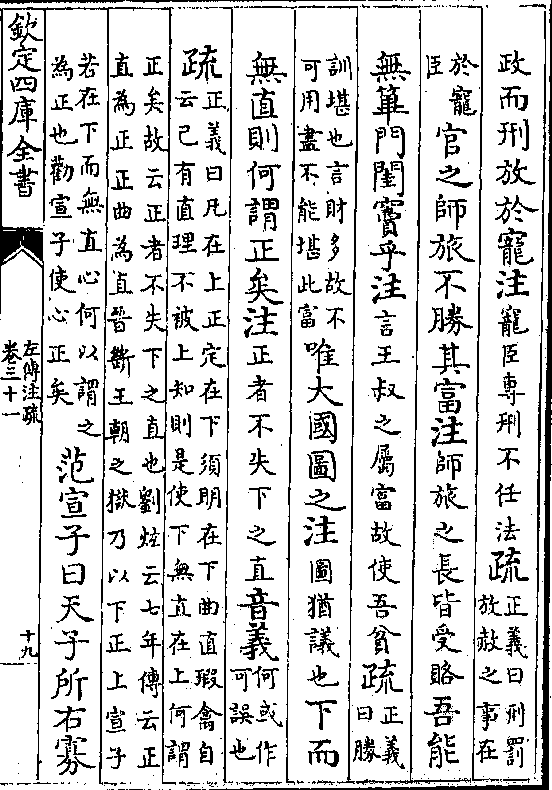 政而刑放於寵注寵臣專刑不任法疏正義曰刑罰
放赦之事在
於寵
臣
官之師旅不勝其富注師旅之長皆受賂吾能
無篳門閨竇乎注言王叔之屬富故使吾貧疏正義
曰勝
訓堪也言財多故不
可用盡不能堪此富
唯大國圖之注圖猶議也下而
無直則何謂正矣注正者不失下之直音義何或作
可誤也
疏正義曰凡在上正定在下須明在下曲直瑕禽自
云己有直理不被上知則是使下無直在上何謂
正矣故云正者不失下之直也劉炫云七年傳云正
直為正正曲為直晉斷王朝之獄乃以下正上宣子
若在下而無直心何以謂之
為正也勸宣子使心正矣
范宣子曰天子所右寡
欽定四庫全書
左傳注疏
卷三十一
十九